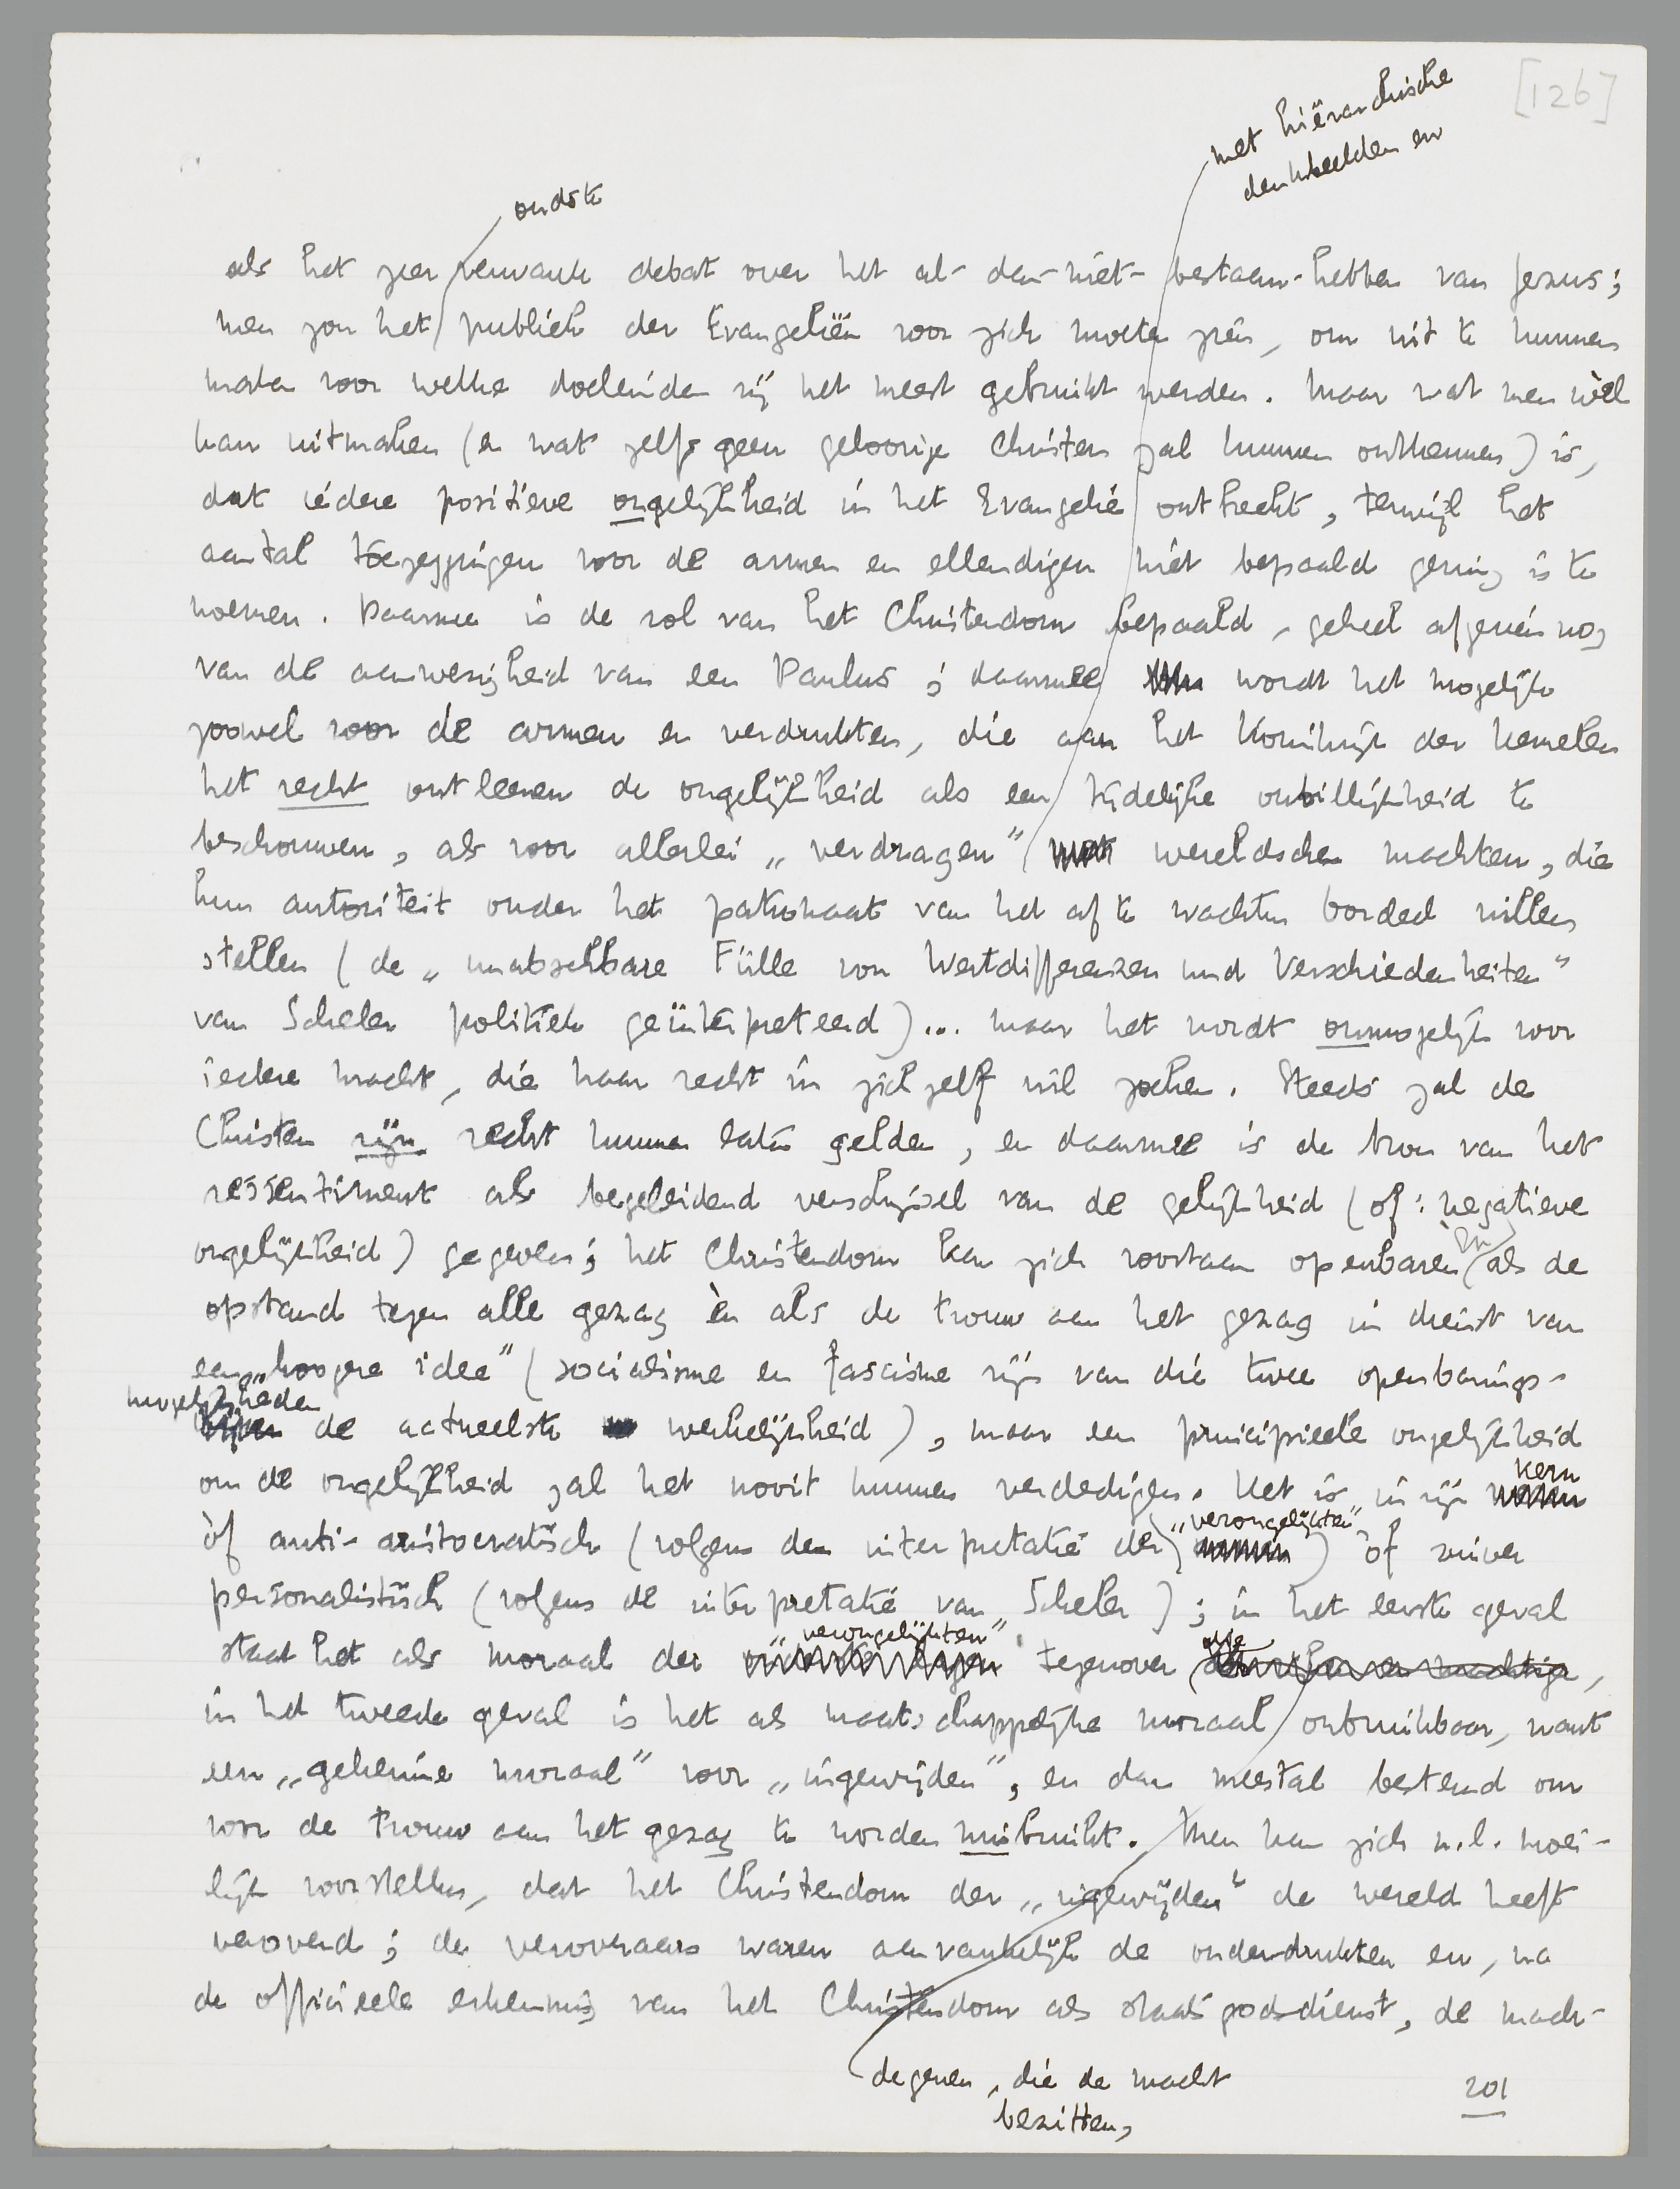 [126]
met hiërarchische
denkbeelden en
oudste
als het zeer verwante debat over het al-dan-niet-bestaan-hebben van Jezus;
men zou het publiek der Evangeliën voor zich moeten zien, om uit te kunnen
maken voor welke doeleinden zij het meest gebruikt werden. Maar wat men wèl
kan uitmaken (en wat zelfs geen geloovige Christen zal kunnen ontkennen) is,
dat iedere positieve ongelijkheid in het Evangelie ontbreekt, terwijl het
aantal toezeggingen voor de armen en ellendigen niet bepaald gering is te
noemen. Daarmee is de rol van het Christendom bepaald, geheel afgezien nog
van de aanwezigheid van een Paulus; daarmee wordt het mogelijk
zoowel voor de armen en verdrukten, die aan het Koninkrijk der hemelen
het recht ontleenen de ongelijkheid als een tijdelijke onbillijkheid te
beschouwen, als voor allerlei „verdragen” met wereldsche machten, die
hun autoriteit onder het patronaat van het af te wachten oordeel willen
stellen (de „unabsehbare Fülle von Wertdifferenzen und Verschiedenheiten”
van Scheler politiek geïnterpreteerd)... maar het wordt onmogelijk voor
iedere macht, die haar recht in zichzelf wil zoeken. Steeds zal de
Christen zijn recht kunnen laten gelden, en daarmee is de bron van het
ressentiment als begeleidend verschijnsel van de gelijkheid (of: negatieve
ongelijkheid) gegeven; het Christendom kan zich voortaan openbaren èn als de
opstand tegen alle gezag èn als de trouw aan het gezag in dienst van
een „hoogere idee” (socialisme en fascisme zijn van die twee openbarings-
mogelijkheden
de actueelste werkelijkheid), maar een principieele ongelijkheid
om de ongelijkheid zal het nooit kunnen verdedigen. Het is in zijn kern
òf anti-aristocratisch (volgens de interpretatie der „verongelijkten”) òf zuiver
personalistisch (volgens de interpretatie van Scheler); in het eerste geval
staat het als moraal der „verongelijkten” tegenover alle
in het tweede geval is het als maatschappelijke moraal onbruikbaar, want
een „geheime moraal” voor „ingewijden”, en dan meestal bestemd om
voor de trouw aan het gezag te worden misbruikt. Men kan zich n.l. moei-
lijk voorstellen, dat het Christendom der „ingewijden” de wereld heeft
veroverd; de veroveraars waren aanvankelijk de onderdrukten en, na
de officieele erkenning van het Christendom als staatsgodsdienst, de mach-
degenen, die de macht
bezitten,
201